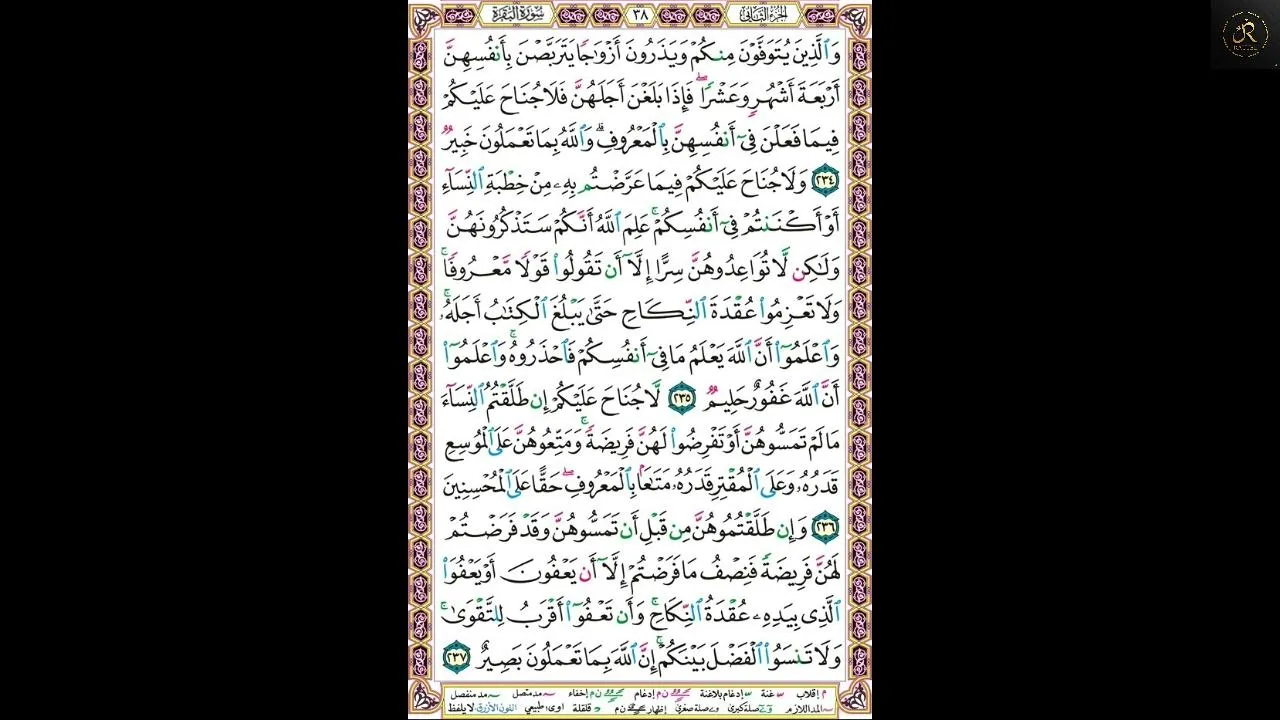 سُورَةُ البَقَرَة ٣٨ الجُزءُ الثَّانِي
وَٱلَّذِينَ يُتَوَفَّوْنَ مِنكُمْ وَيَذَرُونَ أَزْوَٰجًا يَتَرَبَّصْنَ بِأَنفُسِهِنَّ
أَرْبَعَةَ أَشْهُرٍ وَعَشْرًا ۖ فَإِذَا بَلَغْنَ أَجَلَهُنَّ فَلَا جُنَاحَ عَلَيْكُمْ
فِيمَا فَعَلْنَ فِىٓ أَنفُسِهِنَّ بِٱلْمَعْرُوفِ ۗ وَٱللَّهُ بِمَا تَعْمَلُونَ خَبِيرٌ
٢٣٤ وَلَا جُنَاحَ عَلَيْكُمْ فِيمَا عَرَّضْتُم بِهِۦ مِنْ خِطْبَةِ ٱلنِّسَآءِ
أَوْ أَكْنَنتُمْ فِىٓ أَنفُسِكُمْ ۚ عَلِمَ ٱللَّهُ أَنَّكُمْ سَتَذْكُرُونَهُنَّ
وَلَٰكِن لَّا تُوَاعِدُوهُنَّ سِرًّا إِلَّآ أَن تَقُولُوا۟ قَوْلًا مَّعْرُوفًا ۚ
وَلَا تَعْزِمُوا۟ عُقْدَةَ ٱلنِّكَاحِ حَتَّىٰ يَبْلُغَ ٱلْكِتَٰبُ أَجَلَهُۥ ۚ
وَٱعْلَمُوٓا۟ أَنَّ ٱللَّهَ يَعْلَمُ مَا فِىٓ أَنفُسِكُمْ فَٱحْذَرُوهُ ۚ وَٱعْلَمُوٓا۟
أَنَّ ٱللَّهَ غَفُورٌ حَلِيمٌ ٢٣٥ لَّا جُنَاحَ عَلَيْكُمْ إِن طَلَّقْتُمُ ٱلنِّسَآءَ
مَا لَمْ تَمَسُّوهُنَّ أَوْ تَفْرِضُوا۟ لَهُنَّ فَرِيضَةً ۚ وَمَتِّعُوهُنَّ عَلَى ٱلْمُوسِعِ
قَدَرُهُۥ وَعَلَى ٱلْمُقْتِرِ قَدَرُهُۥ مَتَٰعًۢا بِٱلْمَعْرُوفِ ۖ حَقًّا عَلَى ٱلْمُحْسِنِينَ
٢٣٦ وَإِن طَلَّقْتُمُوهُنَّ مِن قَبْلِ أَن تَمَسُّوهُنَّ وَقَدْ فَرَضْتُمْ
لَهُنَّ فَرِيضَةً فَنِصْفُ مَا فَرَضْتُمْ إِلَّآ أَن يَعْفُونَ أَوْ يَعْفُوَا۟
ٱلَّذِى بِيَدِهِۦ عُقْدَةُ ٱلنِّكَاحِ ۚ وَأَن تَعْفُوٓا۟ أَقْرَبُ لِلتَّقْوَىٰ ۚ
وَلَا تَنسَوُا۟ ٱلْفَضْلَ بَيْنَكُمْ ۚ إِنَّ ٱللَّهَ بِمَا تَعْمَلُونَ بَصِيرٌ ٢٣٧
م إقلاب غنة إدغام بلاغنة ن م إدغام ن م إخفاء مد متصل مد منفصل
المد اللازم صلة كبرى صلة صغرى إظهار ن م قلقلة اوى طبيعي اللون الأزرق لا يلفظ
R